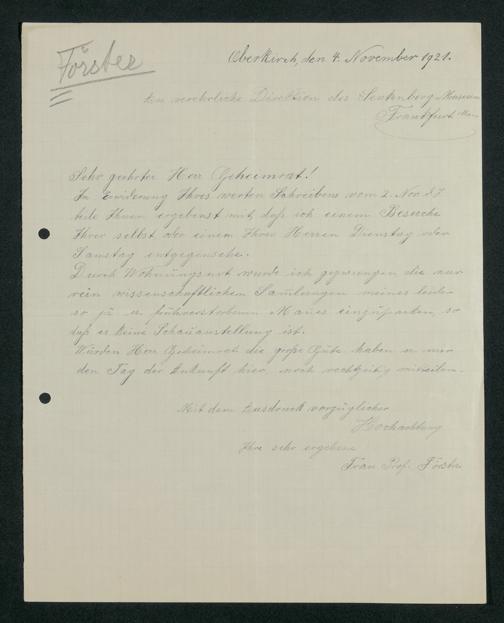 Förster
Oberkirch, den 4. November 1921.
An verehrliche Direktion des Senkenberg Museum
Frankfurt Main
Sehr geehrter Herr Geheimrat!
In Erwiderung Ihres werten Schreibens vom 2. Nov. d. J.
teile Ihnen ergebenst mit, daß ich einem Besuche
Ihrer selbst oder einem Ihrer Herren Dienstag oder
Samstag entgegensehe.
Durch Wohnungsnot wurde ich gezwungen die nur
rein wissenschaftlichen Sammlungen meines leider
so zu früh verstorbenen Mannes einzupacken, so
daß es keine Schaustellung ist.
Würden Herr Geheimrat die große Güte haben u. mir
den Tag der Ankunft hier, noch rechtzeitig mitteilen.
Mit dem Ausdruck vorzüglicher
Hochachtung
Ihre sehr ergebene
Frau Prof. Förster